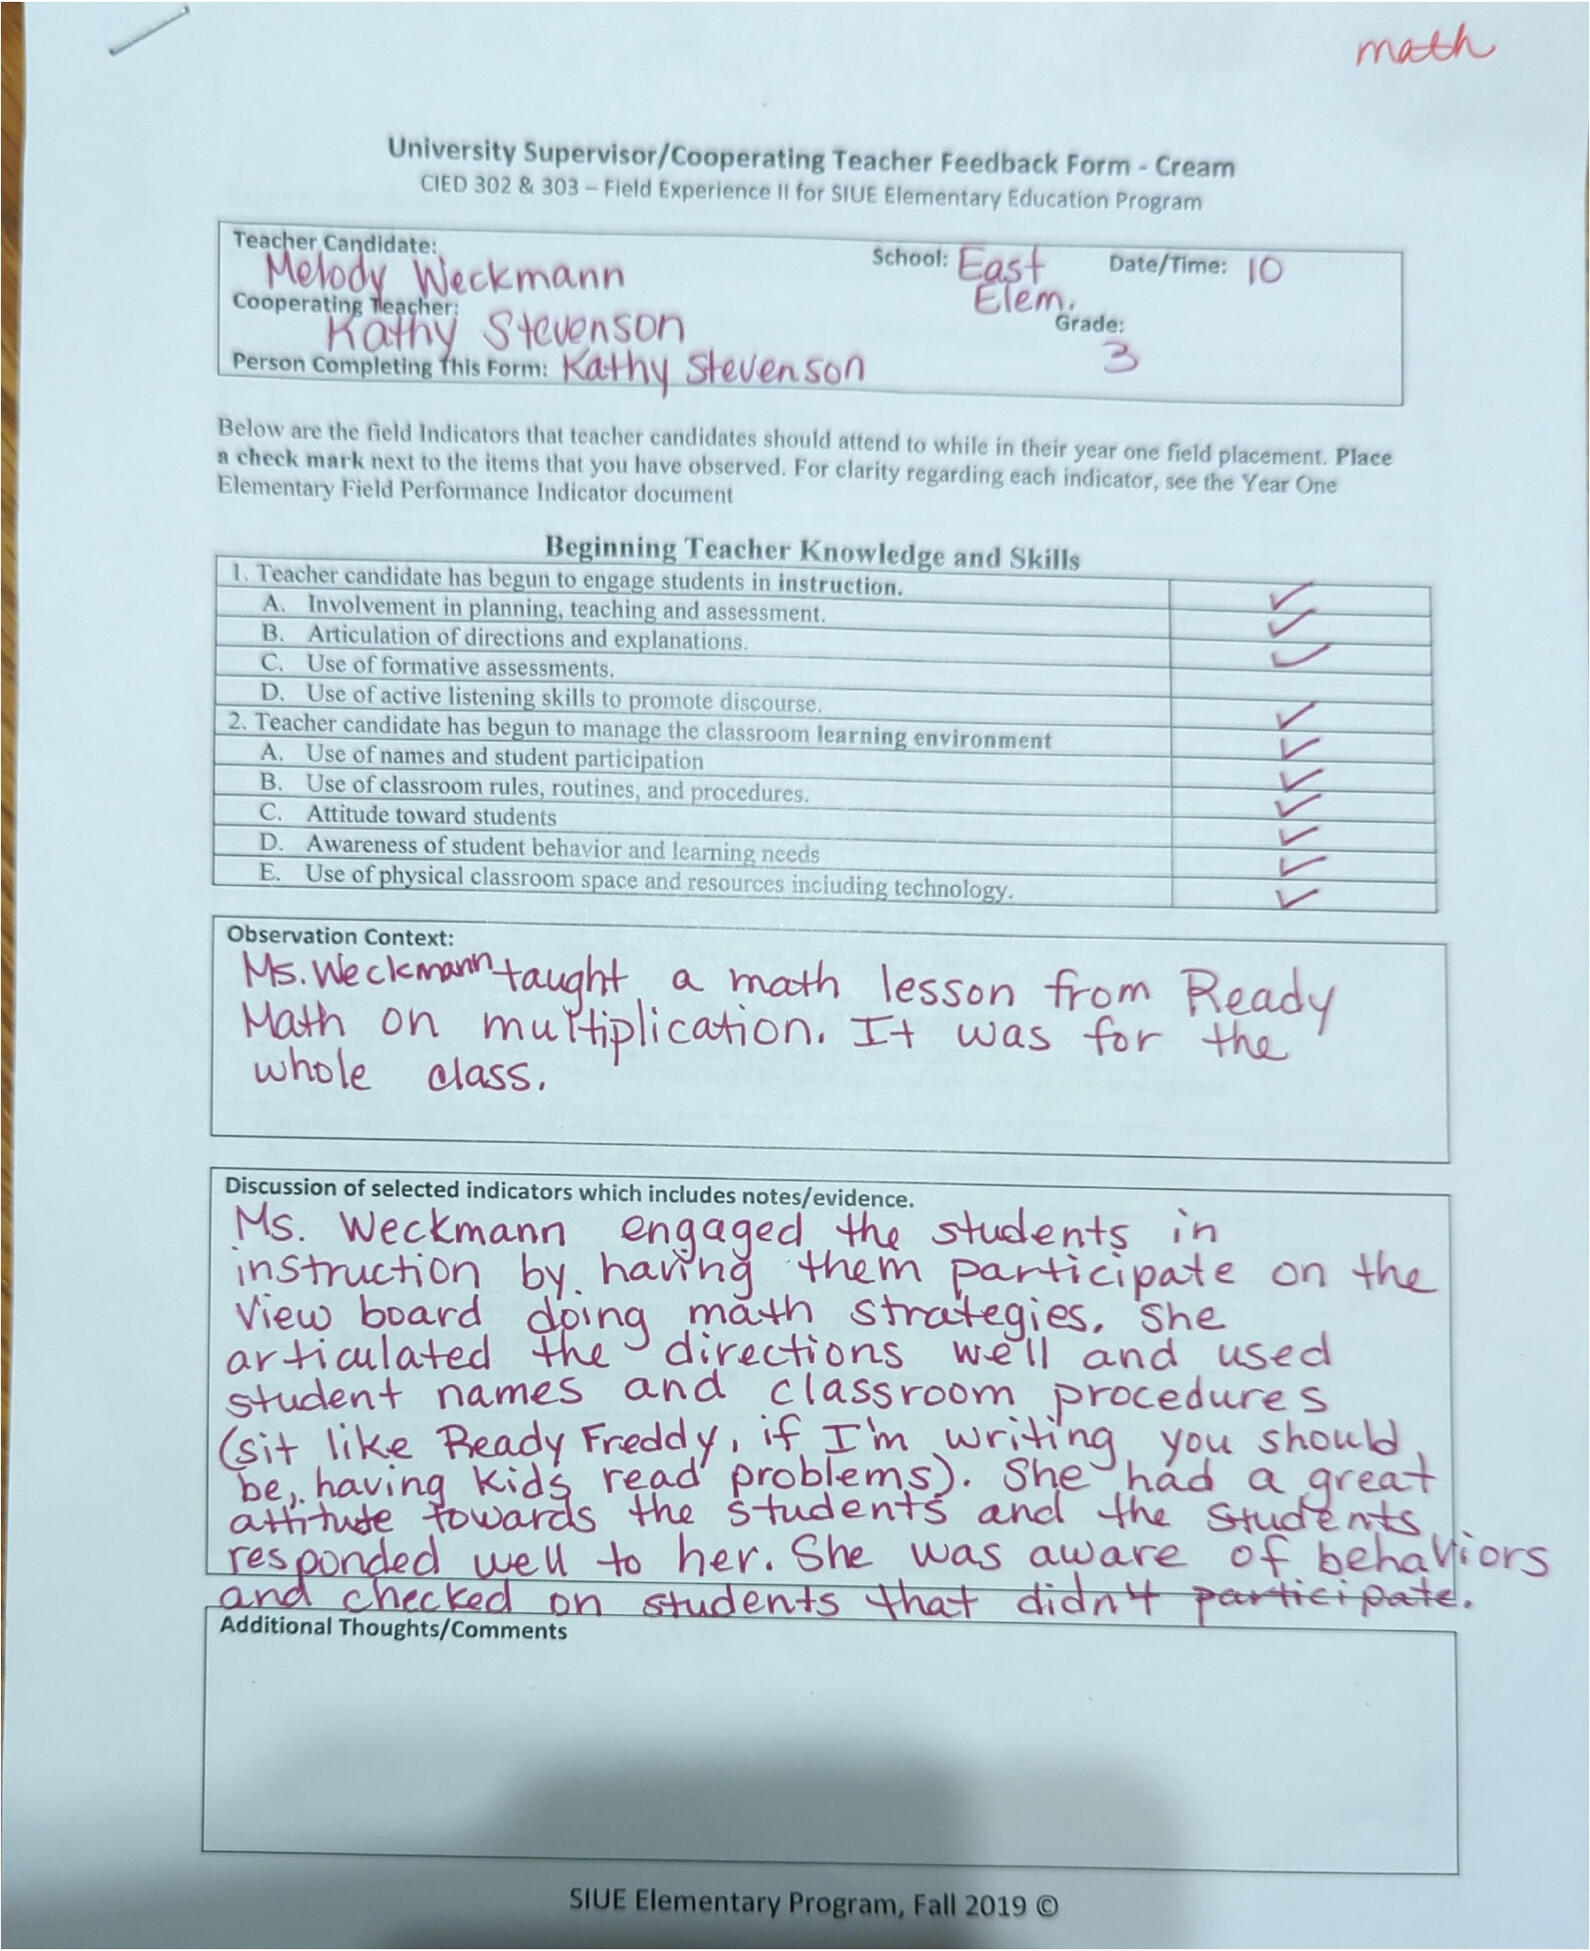 math
University Supervisor/Cooperating Teacher Feedback Form - Cream
CIED 302 & 303 – Field Experience II for SIUE Elementary Education Program
Teacher Candidate: Melody Weckmann School: East Elem. Date/Time: 10
Cooperating Teacher: Kathy Stevenson Grade: 3
Person Completing This Form: Kathy Stevenson
Below are the field Indicators that teacher candidates should attend to while in their year one field placement. Place
a check mark next to the items that you have observed. For clarity regarding each indicator, see the Year One
Elementary Field Performance Indicator document
Beginning Teacher Knowledge and Skills
1. Teacher candidate has begun to engage students in instruction. ✓
A. Involvement in planning, teaching and assessment. ✓
B. Articulation of directions and explanations. ✓
C. Use of formative assessments.
D. Use of active listening skills to promote discourse. ✓
2. Teacher candidate has begun to manage the classroom learning environment ✓
A. Use of names and student participation ✓
B. Use of classroom rules, routines, and procedures. ✓
C. Attitude toward students ✓
D. Awareness of student behavior and learning needs ✓
E. Use of physical classroom space and resources including technology. ✓
Observation Context:
Ms. Weckmann taught a math lesson from Ready
Math on multiplication. It was for the
whole class.
Discussion of selected indicators which includes notes/evidence.
Ms. Weckmann engaged the students in
instruction by having them participate on the
View board doing math strategies. She
articulated the directions well and used
student names and classroom procedures
(sit like Ready Freddy, if I'm writing you should
be, having kids read problems). She had a great
attitude towards the students and the students
responded well to her. She was aware of behaviors
and checked on students that didn't participate.
Additional Thoughts/Comments
SIUE Elementary Program, Fall 2019 ©